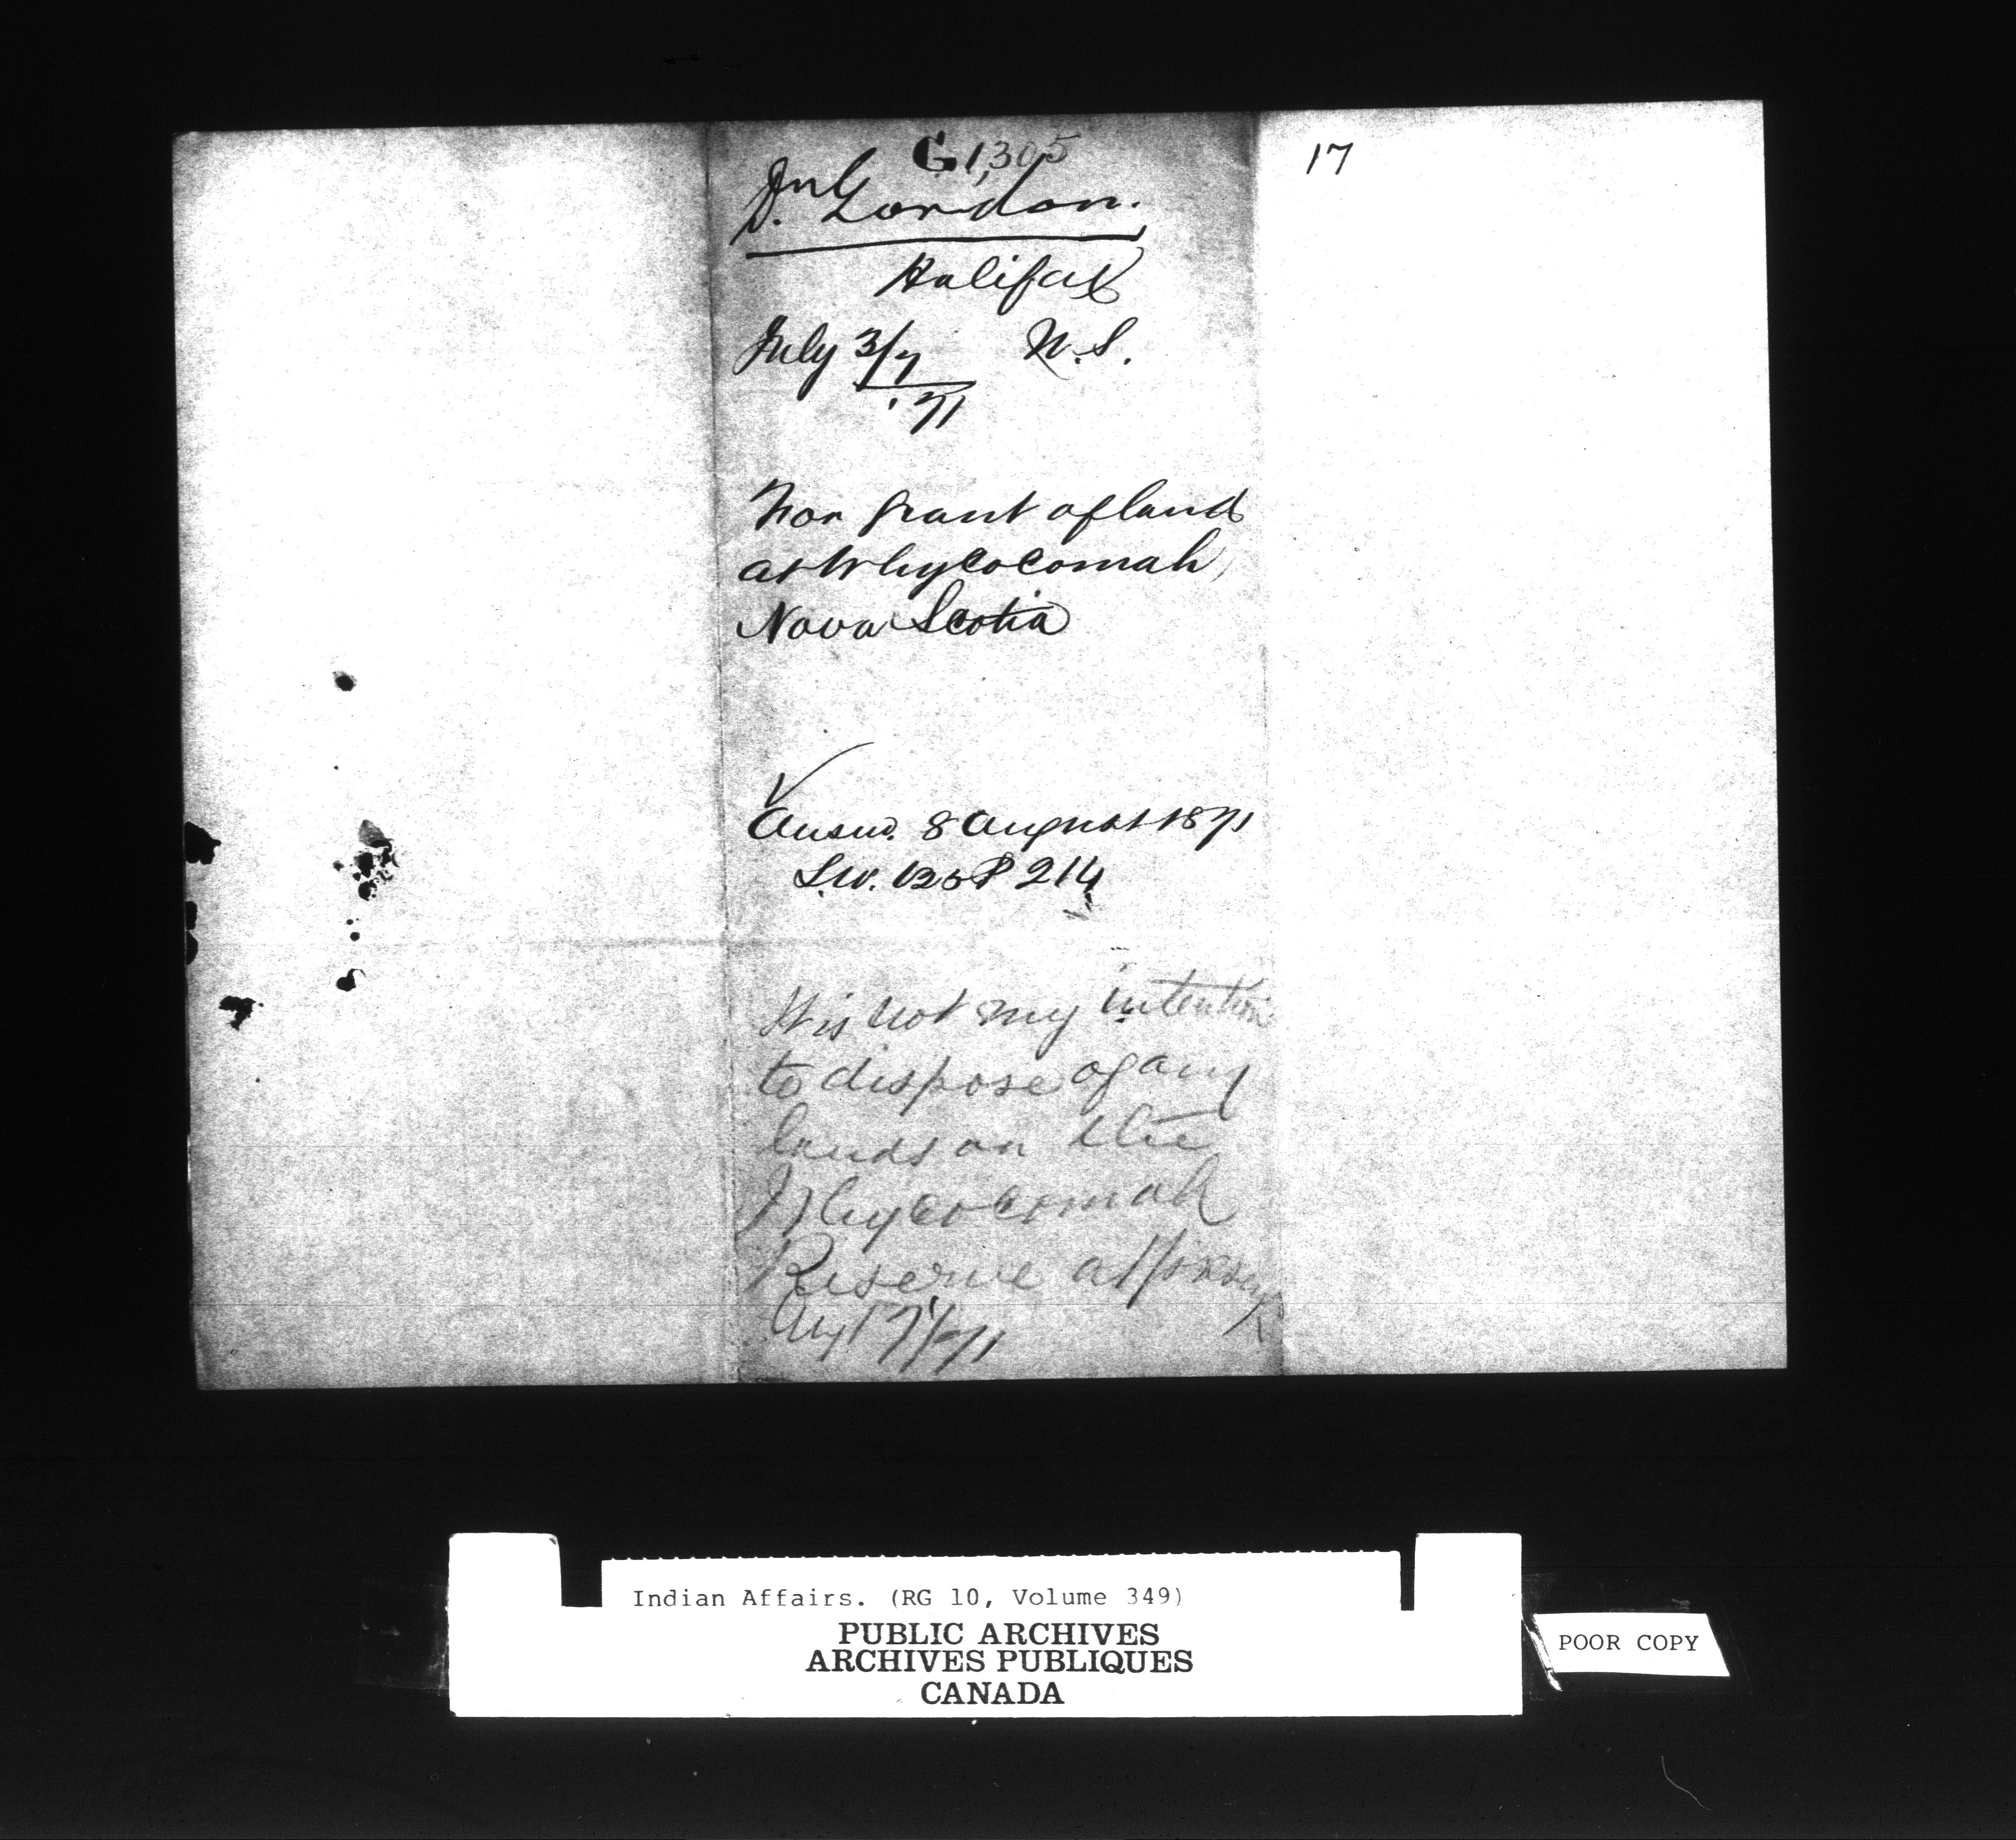 G 1,305
17
D. Gordon.
Halifax
July 3/7 N.S.
'71
For grant of land
at Whycocomah,
Nova Scotia
Answd. 8 August 1871
P 214
It is not my intention
to dispose of any
lands on the
Whycocomah
Reserve at present
Augt 7/71
Indian Affairs. (RG 10, Volume 349)
PUBLIC ARCHIVES
ARCHIVES PUBLIQUES
CANADA
POOR COPY